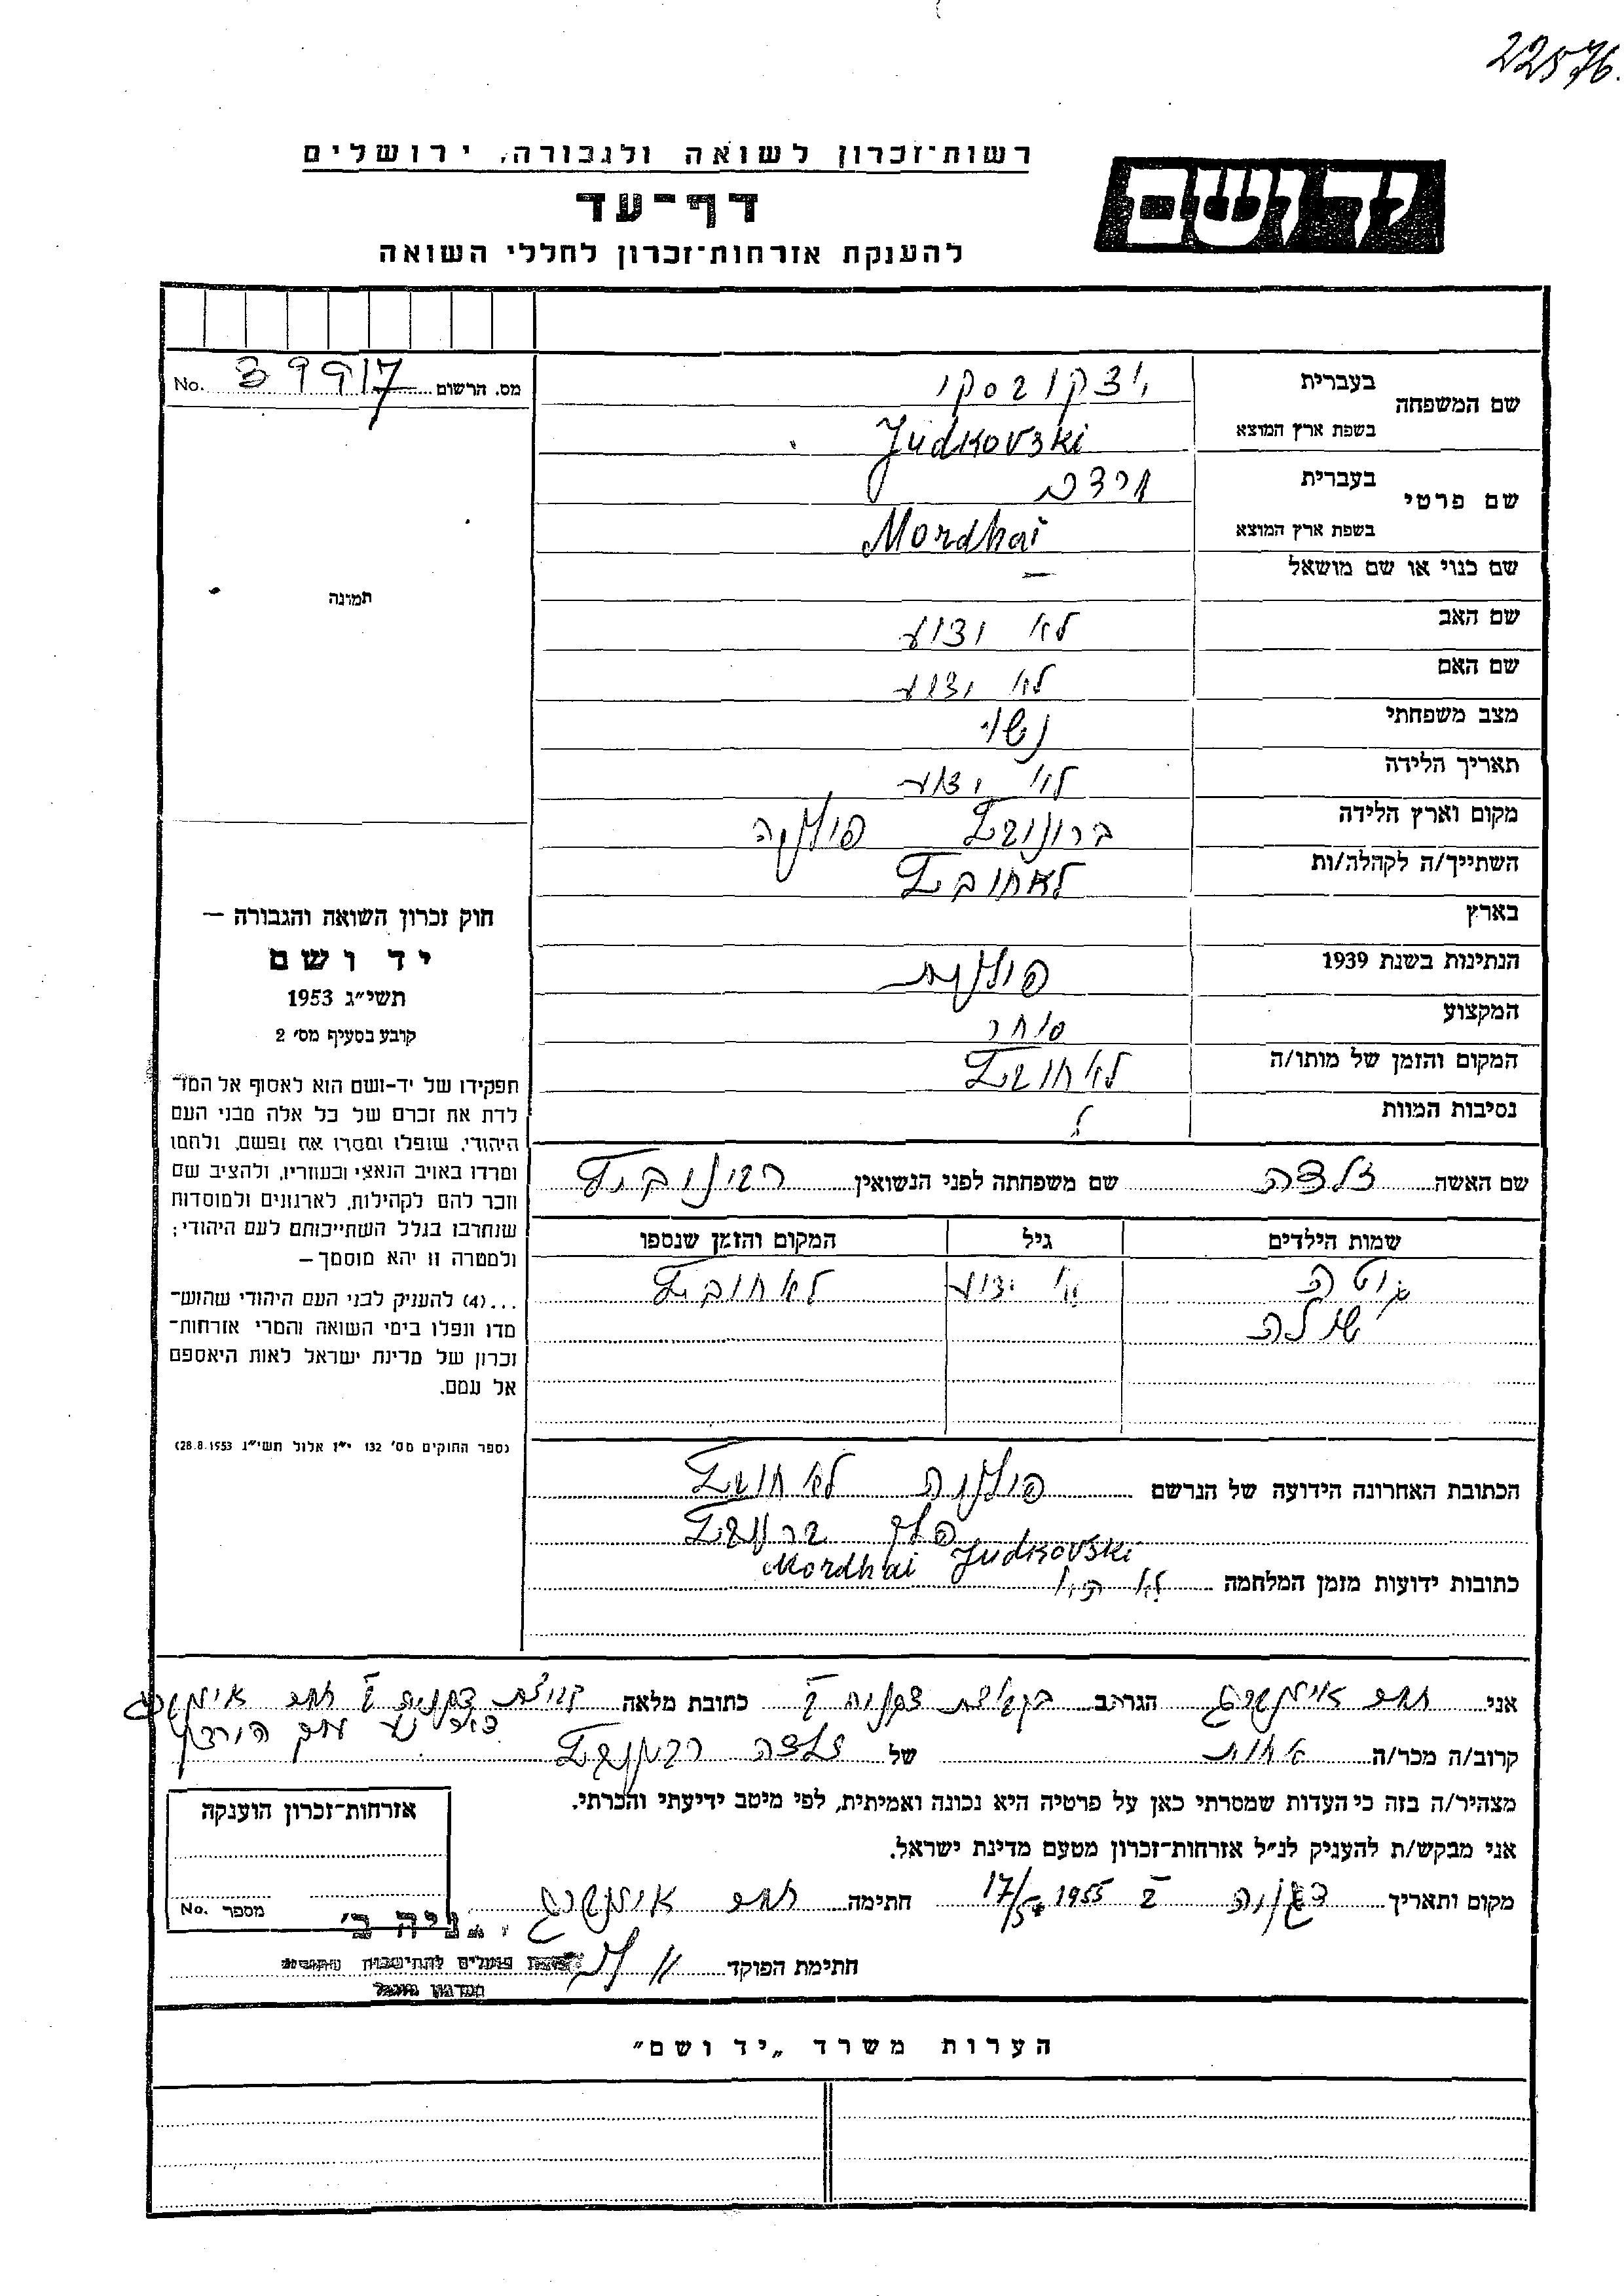 22576.
רשות־זכרון לשואה ולגבורה, ירושלים
יד ושם
דף־עד
להענקת אזרחות־זכרון לחללי השואה
מס. הרשום 39917 No.
שם המשפחה
בעברית יידקובסקי
בשפת ארץ המוצא Judkovski
שם פרטי
בעברית מרדכי
בשפת ארץ המוצא Mordhai
שם כנוי או שם מושאל —
שם האב לא ידוע
שם האם לא ידוע
מצב משפחתי נשוי
תאריך הלידה לא ידוע
מקום וארץ הלידה פולניה
השתייך/ה לקהלה/ות
בארץ
הנתינות בשנת 1939 פולנית
המקצוע סוחר
המקום והזמן של מותו/ה
נסיבות המוות
תמונה
חוק זכרון השואה והגבורה —
יד ושם
תשי״ג 1953
קובע בסעיף מס׳ 2
תפקידו של יד-ושם הוא לאסוף אל המו־
לדת את זכרם של כל אלה מבני העם
היהודי, שנפלו ומסרו את נפשם, ולחמו
ומרדו באויב הנאצי ובעוזריו, ולהציב שם
וזכר להם לקהילות, לארגונים ולמוסדות
שנחרבו בגלל השתייכותם לעם היהודי;
ולמטרה זו יהא מוסמך —
...(4) להעניק לבני העם היהודי שהוש־
מדו ונפלו בימי השואה והמרי אזרחות־
זכרון של מדינת ישראל לאות היאספם
אל עמם.
(ספר החוקים מס׳ 132 י״ז אלול תשי״ג 28.8.1953)
שם האשה זלדה שם משפחתה לפני הנשואין
שמות הילדים גיל המקום והזמן שנספו
גיטה לא ידוע
שולה
הכתובת האחרונה הידועה של הנרשם פולניה
Mordhai Judkovski
כתובות ידועות מזמן המלחמה לא היו
אני הגר/ה ב כתובת מלאה
קרוב/ה מכר/ה אחות של זלדה
מצהיר/ה בזה כי העדות שמסרתי כאן על פרטיה היא נכונה ואמיתית, לפי מיטב ידיעתי והכרתי.
אני מבקש/ת להעניק לנ״ל אזרחות־זכרון מטעם מדינת ישראל.
מקום ותאריך דגניה ב 1955 17/5 חתימה
חתימת הפוקד
אזרחות־זכרון הוענקה
מספר No.
הערות משרד „יד ושם״